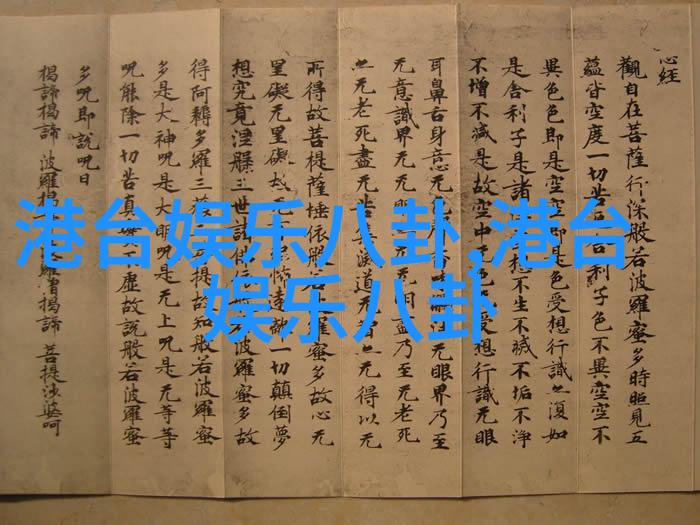 心经
觀自在菩薩行深般若波羅蜜多時照見五
蘊皆空度一切苦利子色不異空空不
異色色即是空空即是色受想行識亦復如
是舍利子是諸想不生不滅不垢不淨
不增不減是故空中色受想行識无眼
耳鼻舌身意无味法无眼界乃至
无意識界无无明盡乃至无老死
亦无老死盡无苦集滅道无智亦无得以无
所得故菩提薩埵依般若羅蜜多故心无
罣礙无罣礙故无怖遠離一切顛倒夢
想究竟涅槃三世諸佛依般波羅蜜多故
得阿耨多羅三菩提故知般若波羅蜜
多是大神呪是大明呪是无上呪是无等等
呪能除一切苦真實不虛故說般若波羅蜜
多呪即說呪曰
揭諦揭諦 波羅揭 羅僧揭諦 菩提沙婆呵
港台娱乐八卦,港台
娱乐八卦